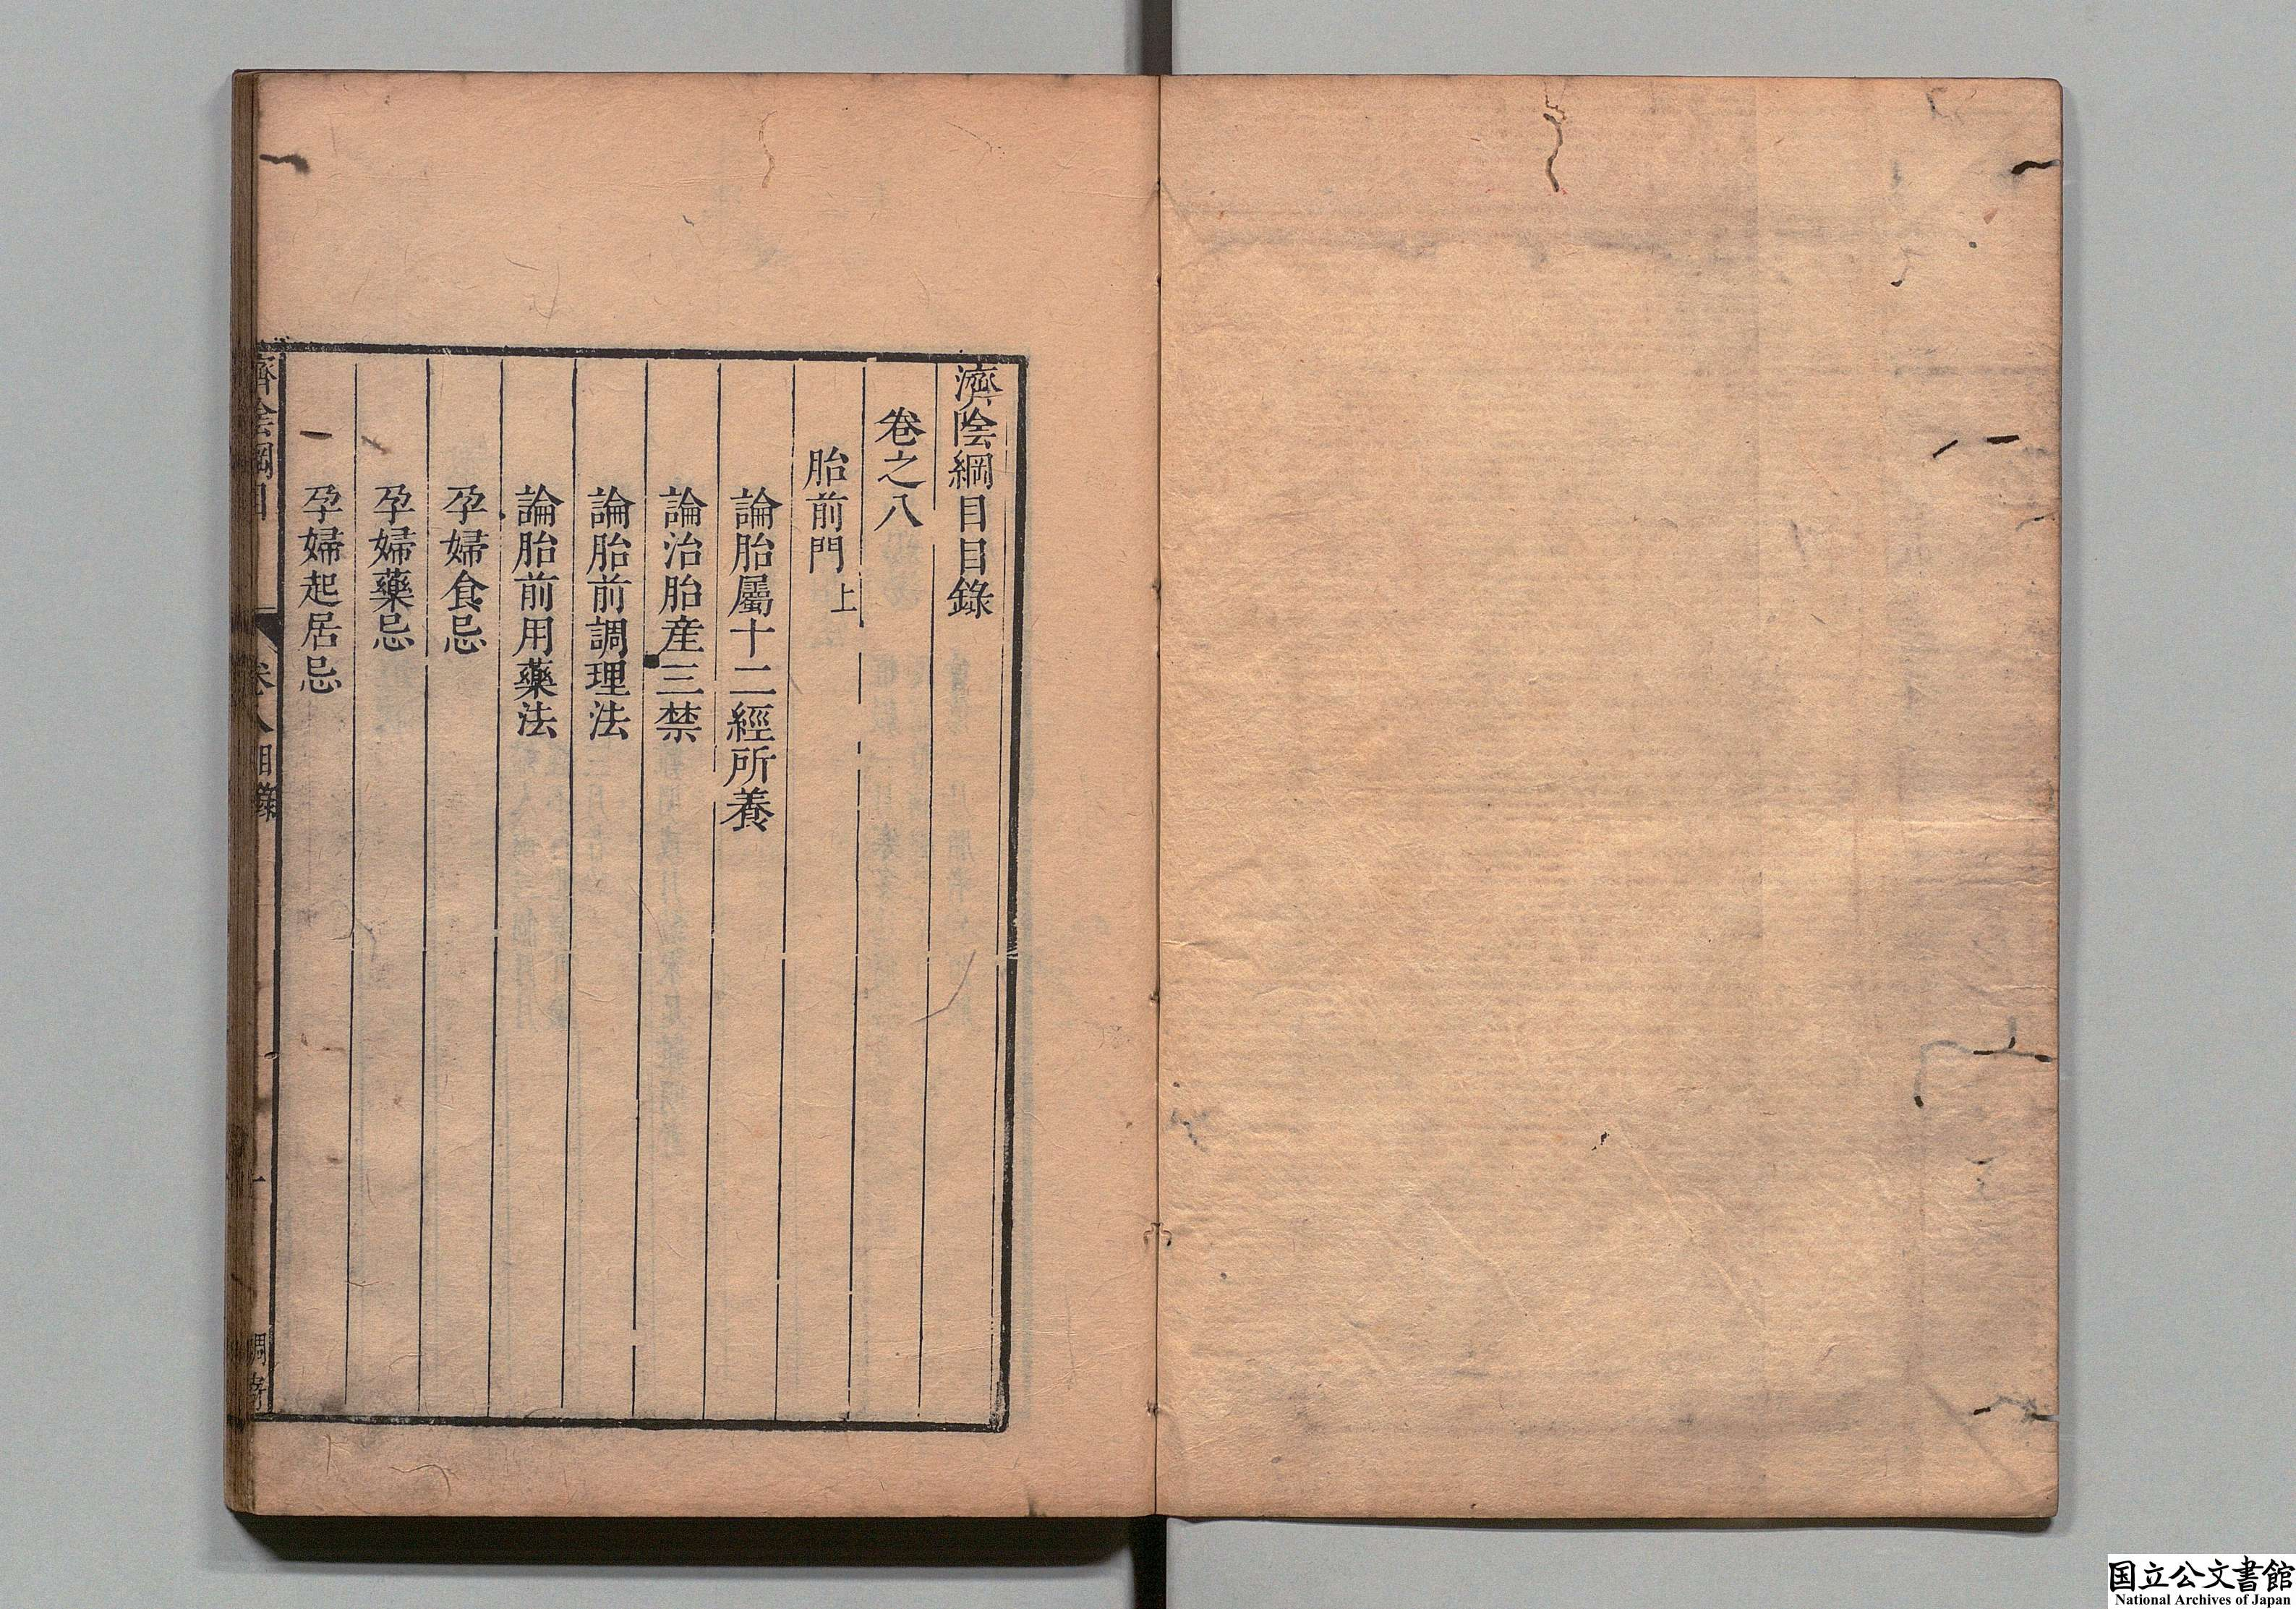 濟陰綱目目錄
卷之八
胎前門上
論胎屬十二經所養
論治胎産三禁
論胎前調理法
論胎前用藥法
孕婦食忌
孕婦藥忌
孕婦起居忌
濟陰綱目 卷八目錄 一
国立公文書館
National Archives of Japan